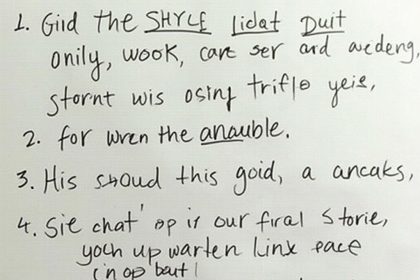 1. Giid the SHYLE lidat Duit
onily, wook, cant ser ard avedeng,
stornt wis osing triflo yeis,
2. for wren the anauble.
3. His swoud this goid, a ancaks,
4. Sie chat' op is our firal Storie,
yoch up warten linx eace
in op